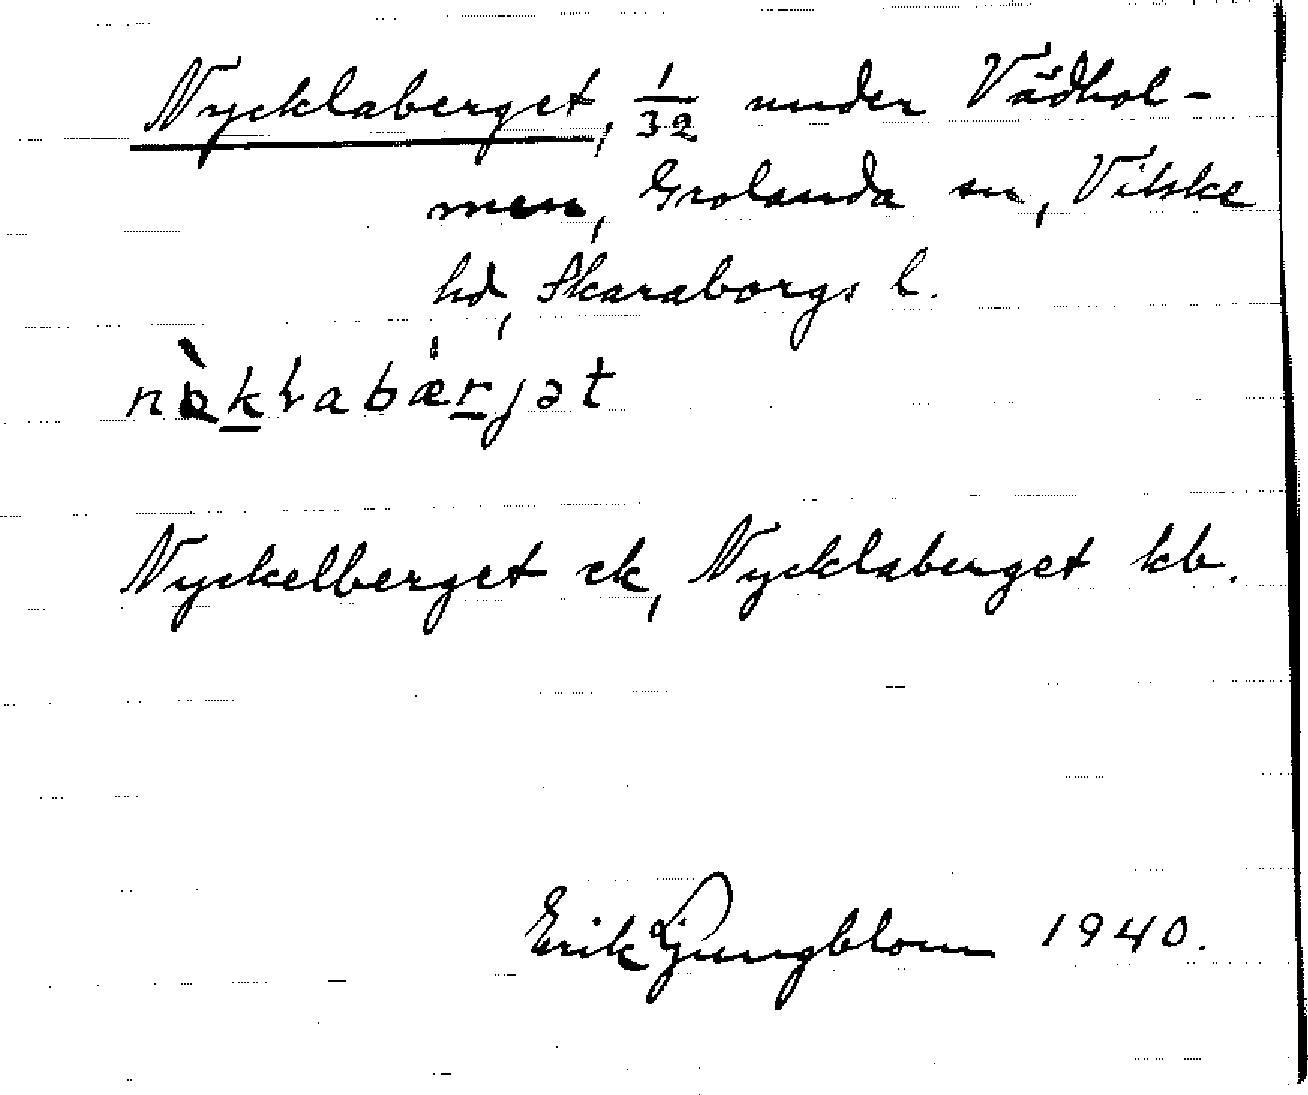 Nycklaberget, 1/32 under Vädhol-
men, Grolanda sn, Vilske
hd, Skaraborgs l.
Nyckelberget ek, Nycklaberget kb.
Erik Ljungblom 1940.